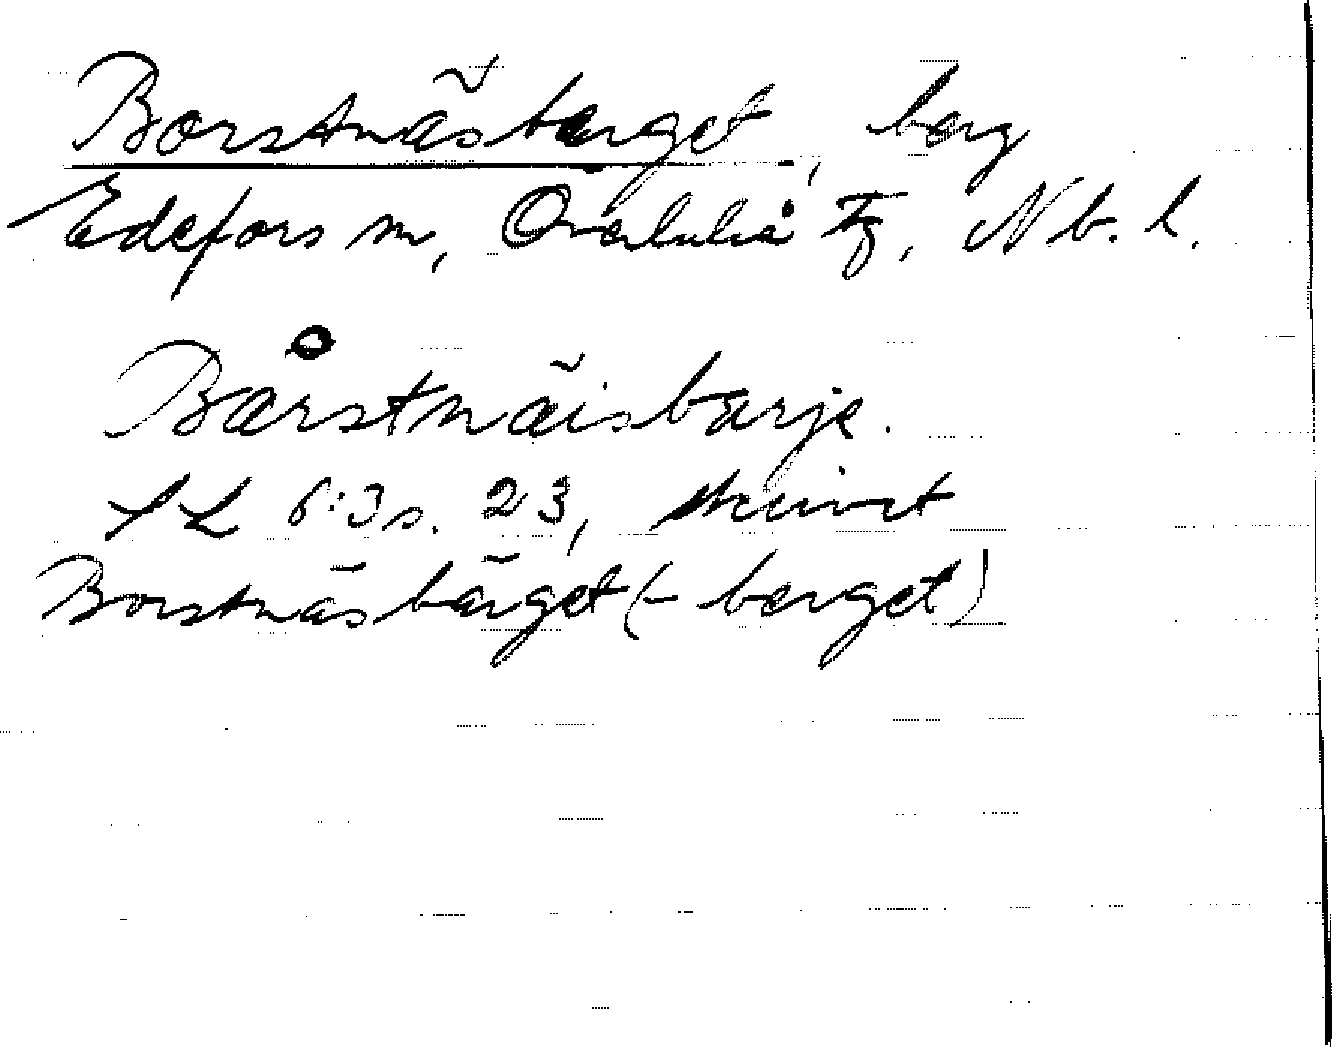 Borstnäsberget, berg
Edefors sn, Överluleå tg, Nb. l.
Bårstnäisbarje.
SL 6:3 s. 23, skrivet
Borstnäsbärget (-berget)